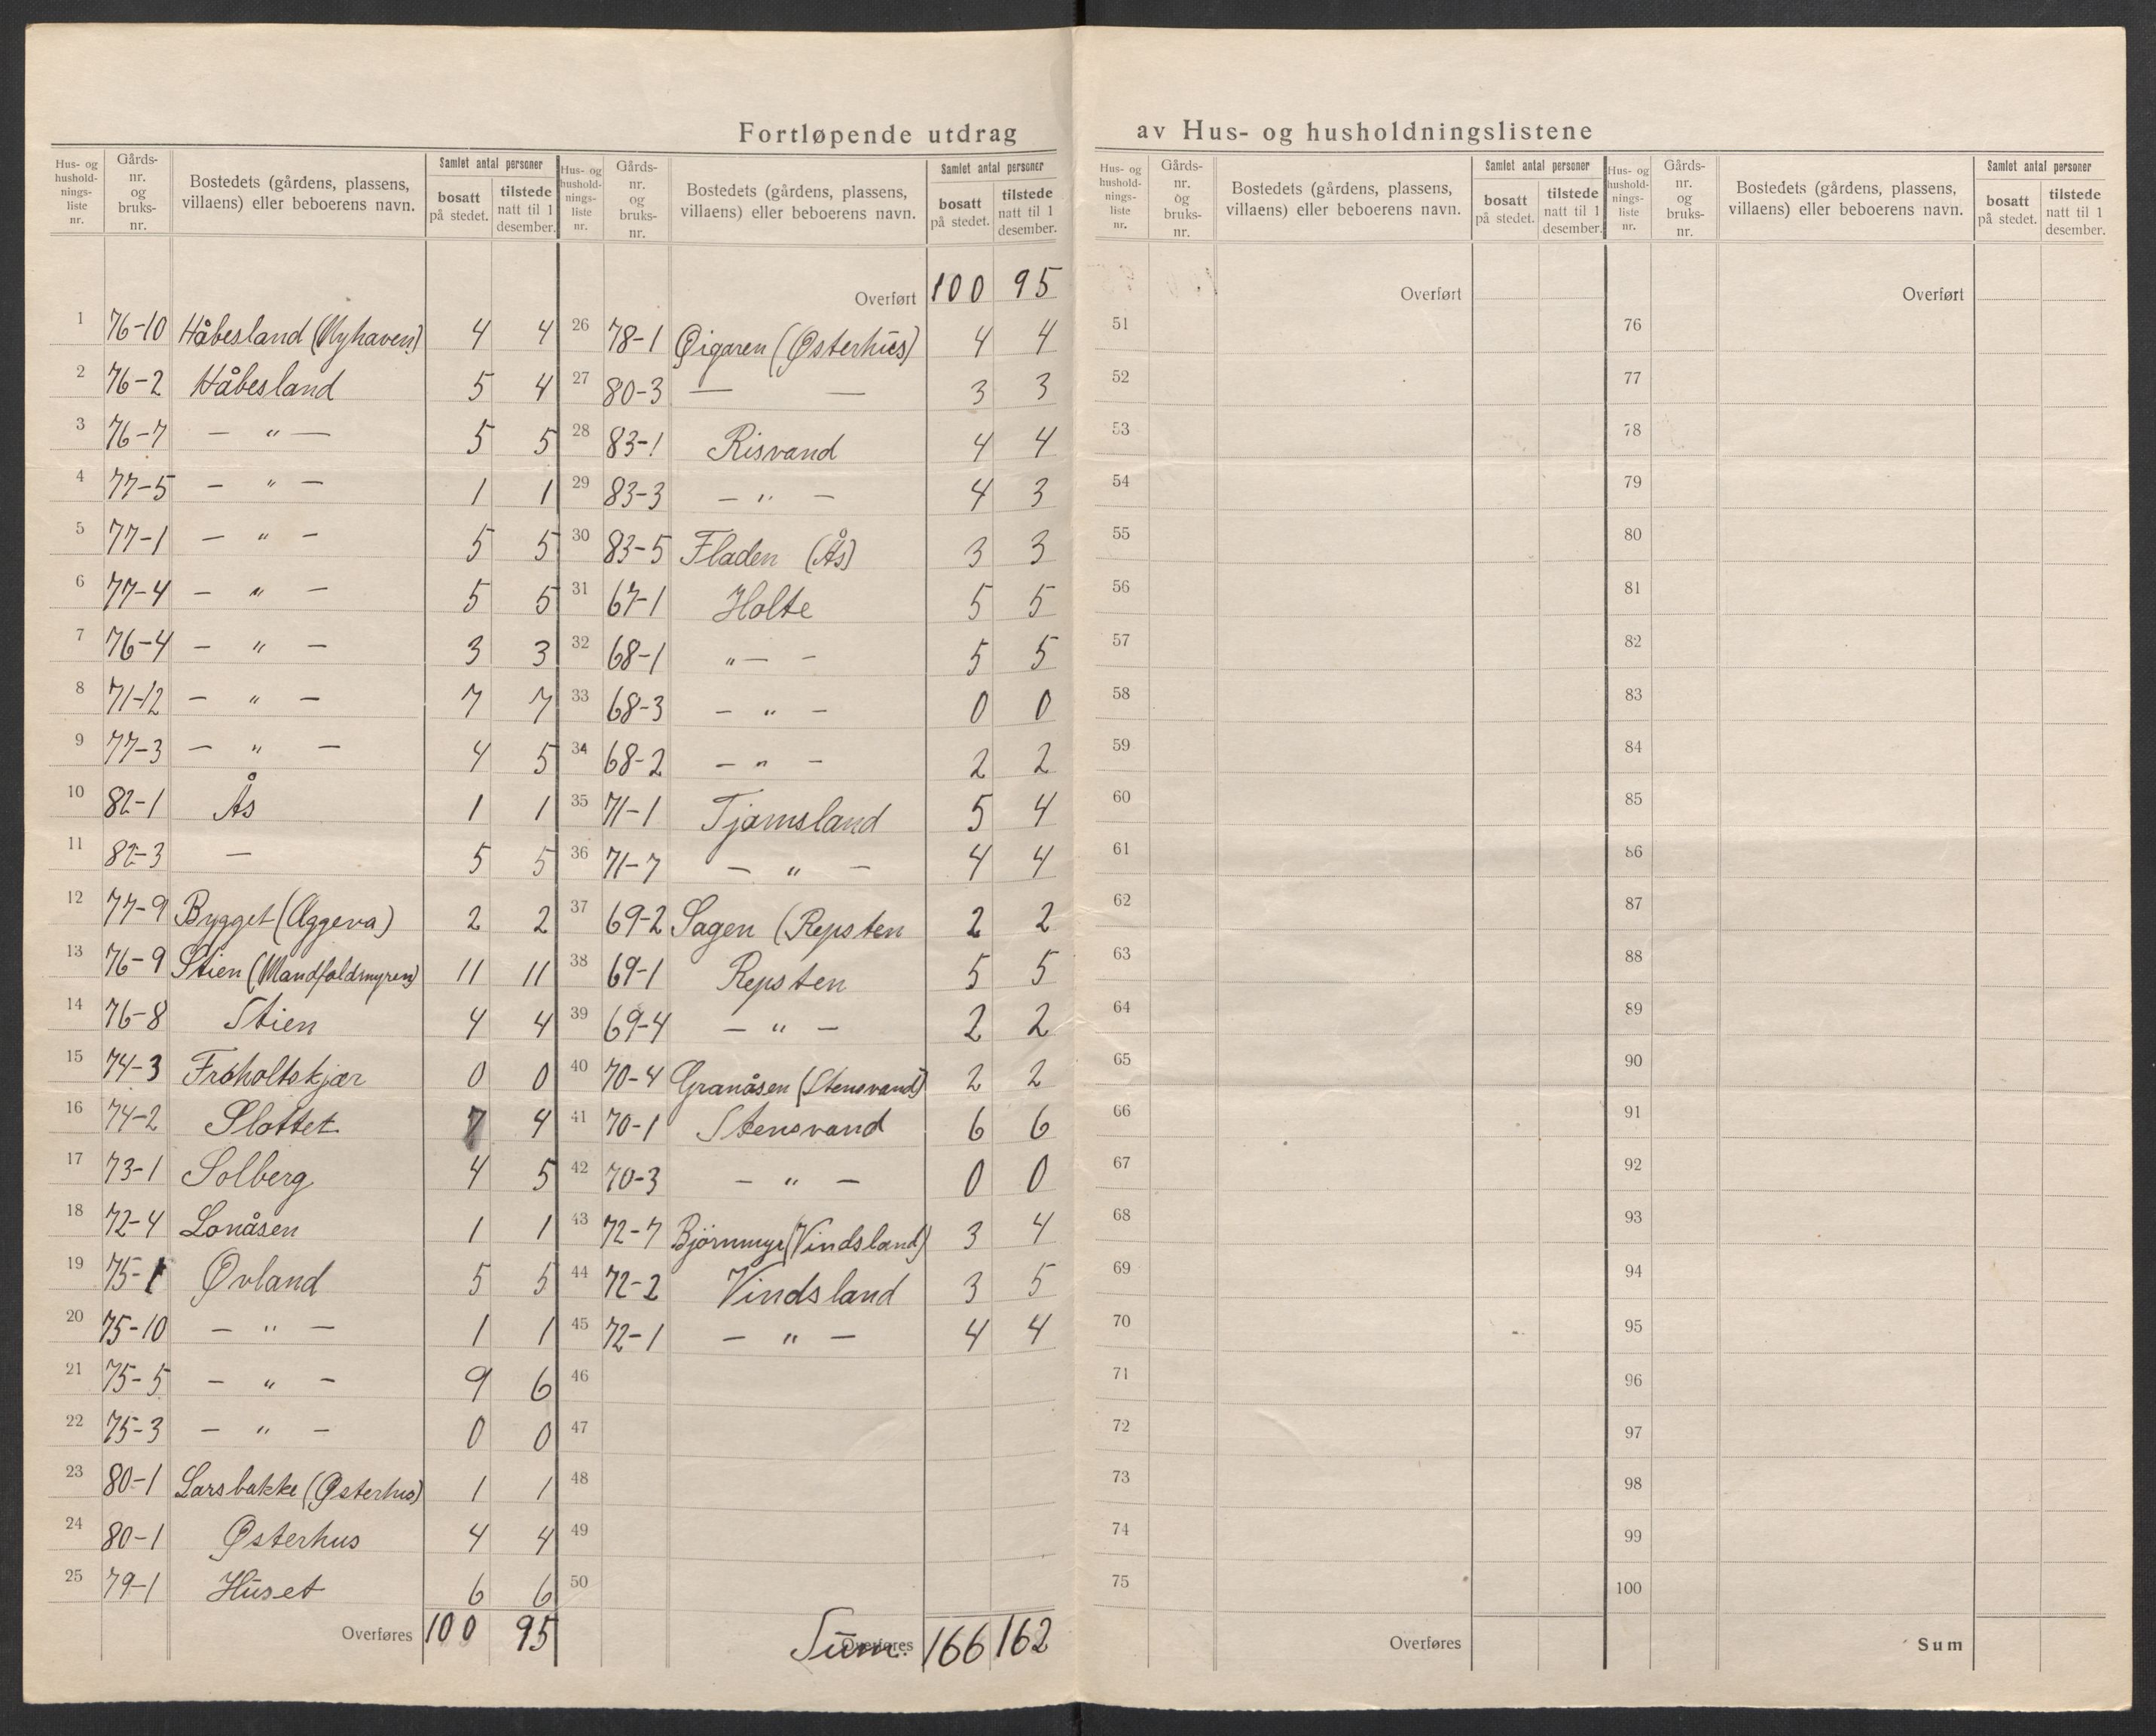 Fortløpende utdrag av Hus- og husholdningslistene
Hus- og husholdningsliste nr. Gårdsnr. og bruksnr. Bostedets (gårdens, plassens, villaens) eller beboerens navn. Samlet antal personer bosatt på stedet. tilstede natt til 1 desember.
1 76-10 Håbesland (Nyhaven) 4 4
2 76-2 Håbesland 5 4
3 76-7 — " — 5 5
4 77-5 — " — 1 1
5 77-1 — " — 5 5
6 77-4 — " — 5 5
7 76-4 — " — 3 3
8 71-12 — " — 7 7
9 77-3 — " — 4 5
10 82-1 Ås 1 1
11 82-3 — 5 5
12 77-9 Bygget (Aggeva) 2 2
13 76-9 Stien (Mandfoldmyren) 11 11
14 76-8 Stien 4 4
15 74-3 Froholtskjær 0 0
16 74-2 Slottet 7 4
17 73-1 Solberg 4 5
18 72-4 Lonåsen 1 1
19 75-1 Øvland 5 5
20 75-10 — " — 1 1
21 75-5 — " — 9 6
22 75-3 — " — 0 0
23 80-1 Larsbakke (Østerhus) 1 1
24 80-1 Østerhus 4 4
25 79-1 Huset 6 6
Overføres 100 95
Hus- og husholdningsliste nr. Gårdsnr. og bruksnr. Bostedets (gårdens, plassens, villaens) eller beboerens navn. Samlet antal personer bosatt på stedet. tilstede natt til 1 desember.
Overført 100 95
26 78-1 Øigaren (Østerhus) 4 4
27 80-3 — — 3 3
28 83-1 Risvand 4 4
29 83-3 — " — 4 3
30 83-5 Fladen (Ås) 3 3
31 67-1 Holte 5 5
32 68-1 " — — 5 5
33 68-3 — " — 0 0
34 68-2 — " — 2 2
35 71-1 Tjomsland 5 4
36 71-7 — " — 4 4
37 69-2 Sagen (Repsten 2 2
38 69-1 Repsten 5 5
39 69-4 — " — 2 2
40 70-4 Granåsen (Stensvand) 2 2
41 70-1 Stensvand 6 6
42 70-3 — " — 0 0
43 72-7 Björnmyr (Vindsland) 3 4
44 72-2 Vindsland 3 5
45 72-1 — " — 4 4
46
47
48
49
50
Overføres Sum. 166 162
Hus- og husholdningsliste nr. Gårdsnr. og bruksnr. Bostedets (gårdens, plassens, villaens) eller beboerens navn. Samlet antal personer bosatt på stedet. tilstede natt til 1 desember.
Overført
51
52
53
54
55
56
57
58
59
60
61
62
63
64
65
66
67
68
69
70
71
72
73
74
75
Overføres
Hus- og husholdningsliste nr. Gårdsnr. og bruksnr. Bostedets (gårdens, plassens, villaens) eller beboerens navn. Samlet antal personer bosatt på stedet. tilstede natt til 1 desember.
Overført
76
77
78
79
80
81
82
83
84
85
86
87
88
89
90
91
92
93
94
95
96
97
98
99
100
Sum